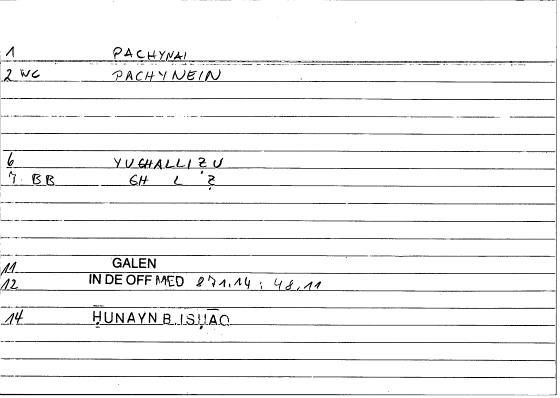 1 PACHYNAI
2 WG PACHYNEIN
6 YUGHALLIẒU
7 BB GH L Ẓ
11 GALEN
12 IN DE OFF MED 871.14 ; 48.11
14 ḤUNAYN B. ISḤĀQ